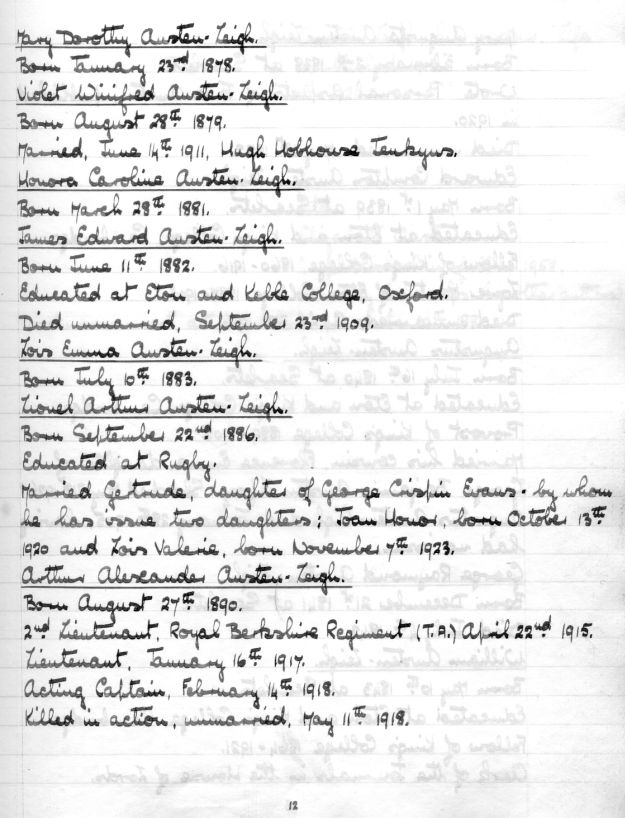 Mary Dorothy Austen-Leigh.
Born January 23rd 1878.
Violet Winifred Austen-Leigh.
Born August 28th 1879.
Married, June 14th 1911, Hugh Hobhouse Jenkyns.
Honora Caroline Austen-Leigh.
Born March 28th 1881.
James Edward Austen-Leigh.
Born June 11th 1882.
Educated at Eton and Keble College, Oxford.
Died unmarried, September 23rd 1909.
Lois Emma Austen-Leigh.
Born July 10th 1883.
Lionel Arthur Austen-Leigh.
Born September 22nd 1886.
Educated at Rugby.
Married Gertrude, daughter of George Crispin Evans - by whom
he has issue two daughters; Joan Honor, born October 13th
1920 and Lois Valerie, born November 7th 1923.
Arthur Alexander Austen-Leigh.
Born August 27th 1890.
2nd Lieutenant, Royal Berkshire Regiment (T.A.) April 22nd 1915.
Lieutenant, January 16th 1917.
Acting Captain, February 14th 1918.
Killed in action, unmarried, May 11th 1918.
12